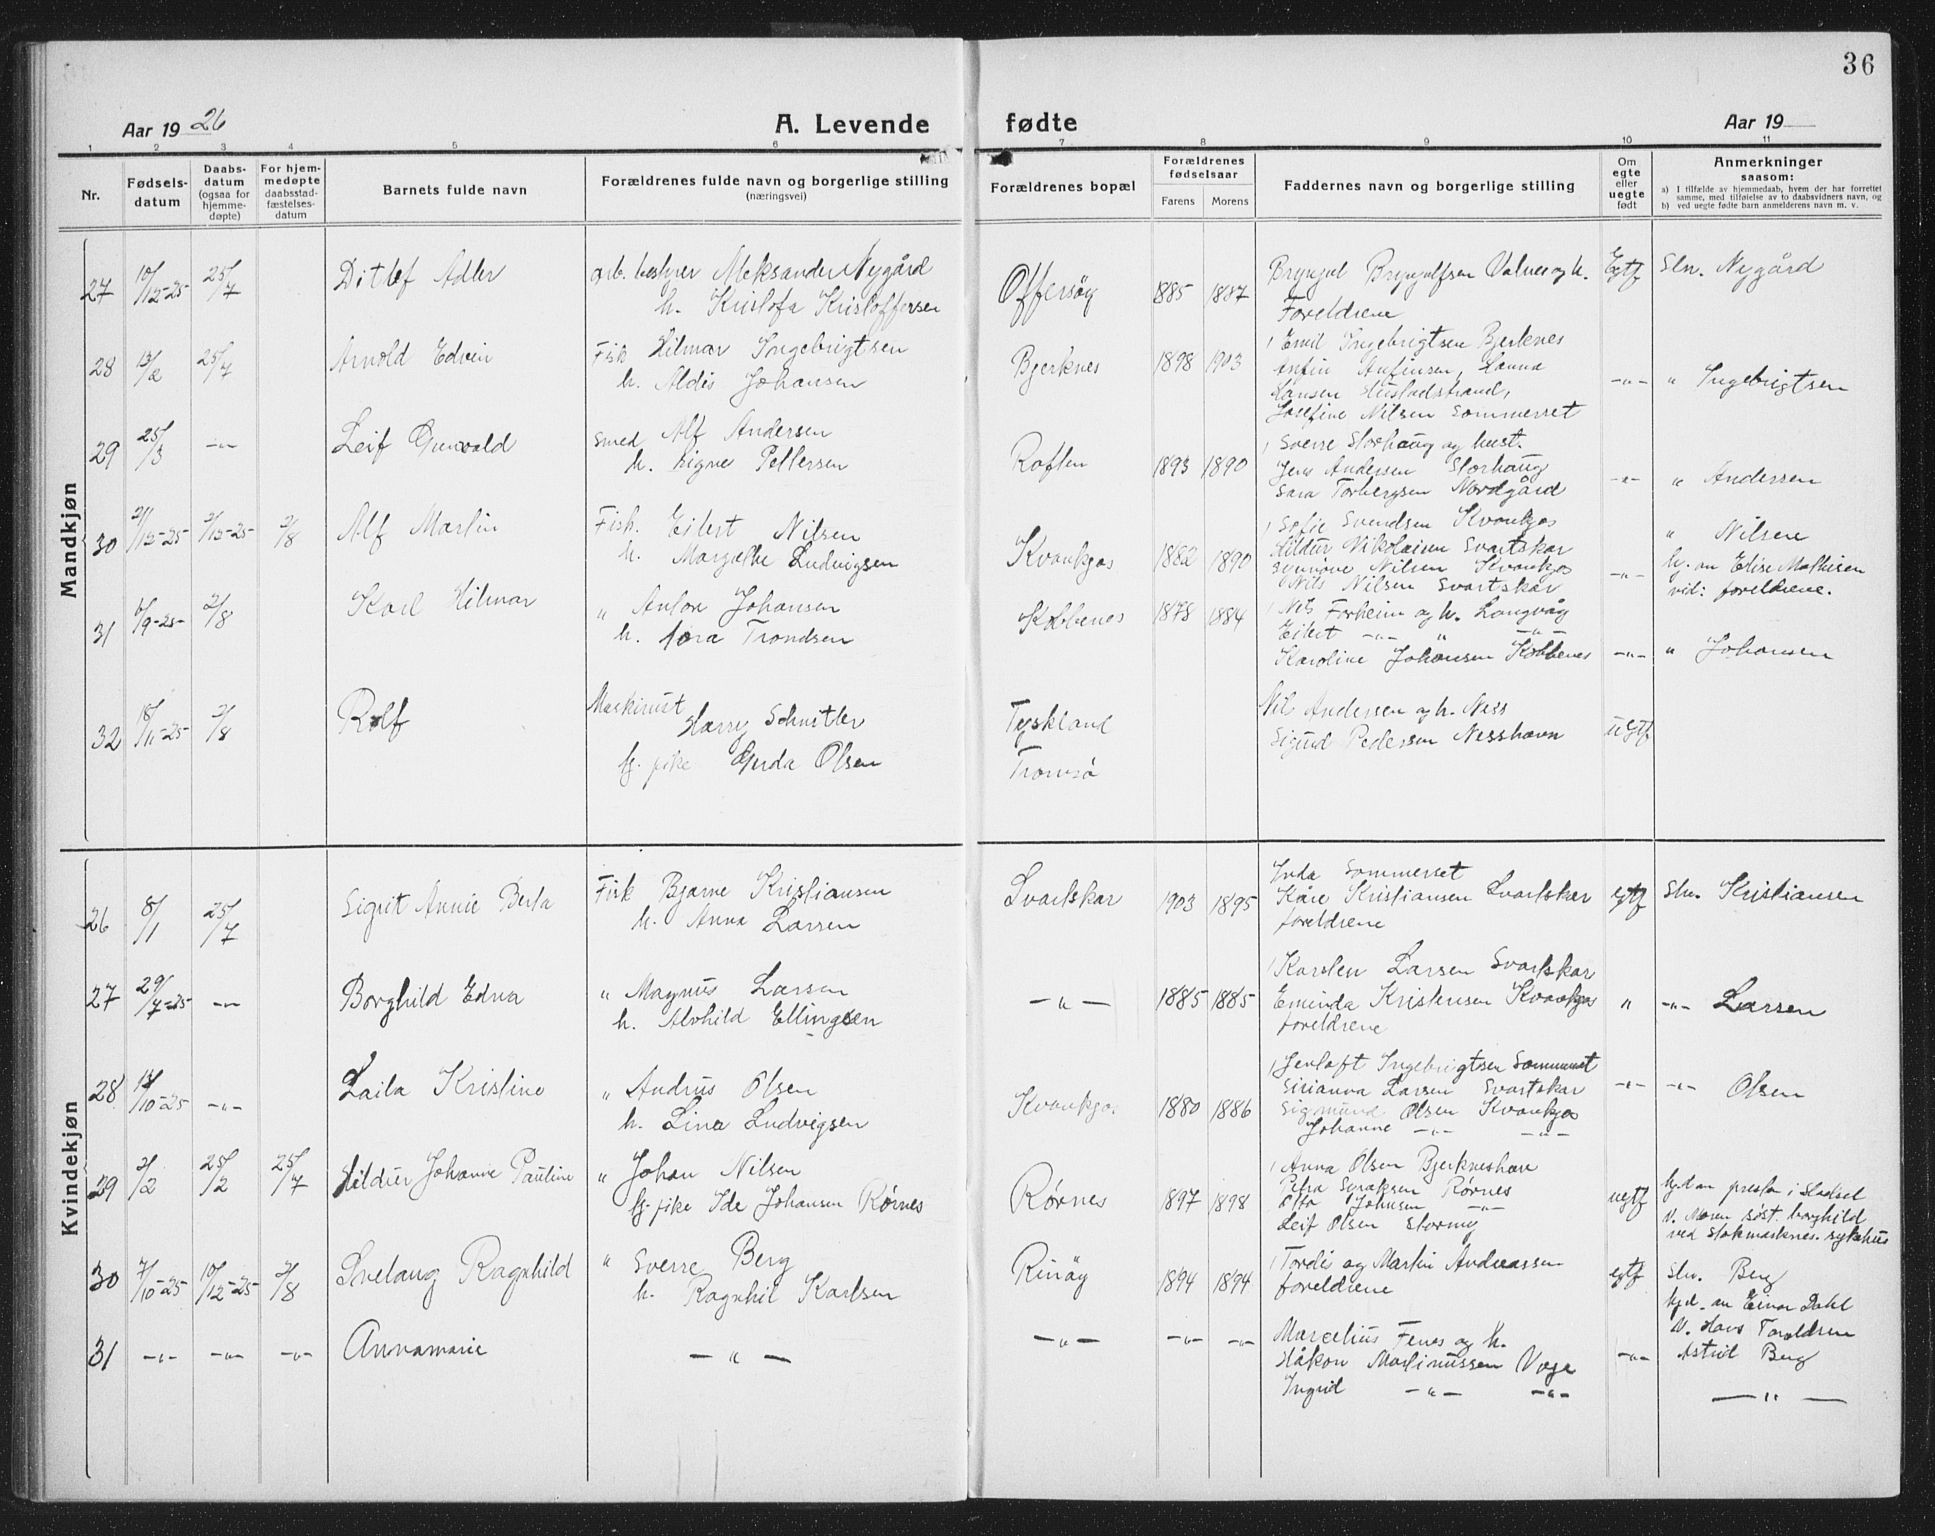 36
Aar 19 26
A. Levende
fødte
Aar 19
1 2 3 4 5 6 7 8 9 10 11
Nr.
Fødsels-
datum
Daabs-
datum
(ogsaa for
hjemme-
døpte)
For hjem-
medøpte
daabsstad-
fæstelses-
datum
Barnets fulde navn
Forældrenes fulde navn og borgerlige stilling
(næringsvei)
Forældrenes bopæl
Forældrenes
fødselsaar
Farens Morens
Faddernes navn og borgerlige stilling
Om
egte
eller
uegte
født
Anmerkninger
saasom:
a) I tilfælde av hjemmedaab, hvem der har forrettet
samme, med tilføielse av to daabsvidners navn, og
b) ved uegte fødte barn anmelderens navn m. v.
Mandkjøn
27 10/12-25 25/7 Ditlef Adler
Aleksander Nygård
h. Kristofa Kristoffersen
Offersøy 1885 1887
Brynjul Brynjulfsen Valnes og h.
Foreldrene
Egtf Sln. Nygård
28 13/2 25/7 Arnold Edvin
Fisk Hilmar Ingebrigtsen
h. Aldis Johansen
Bjerknes 1898 1903
Emil Ingebrigtsen Bjerknes
Anfin Anfinsen, Hanna
Hansen Hustadstrand,
Josefine Nilsen Sommerset
-"- " Ingebrigtsen
29 25/3 -"- Leif Grunvald
Smed Alf Andersen
h. Signe Pettersen
Roften 1893 1890
Sverre Storhaug og hust.
Jens Andersen Storhaug
Sara Torbergsen Nordgård
-"- " Andersen
30 2/12-25 2/8 Alf Martin
Fisk. Eilert Nilsen
h. Margrethe Ludvigsen
Kvankjos 1882 1890
Sofie Svendsen Kvankjos
Hildur Nikolaisen Svartskar
Synnøve Nilsen Kvankjos
Nils Nilsen Svartskar
-"- " Nilsen
hj. av Elise Mathisen
vid: foreldrene.
31 6/9-25 2/8 Karl Hilmar
" Anton Johansen
h. Tora Trondsen
Kobbenes 1878 1884
Nils Forheim og h. Langvåg
Eilert -"- " -"-
Karoline Johansen Kobbenes
-"- " Johansen
32 18/11-25 2/8 Rolf
Maskinist
Harry Schnitler
Gerda Olsen
Tyskland
Tromsø
Nils Andersen og h. Ness
Sigurd Pedersen Nesshavn
uegtf
Kvindekjøn
26 8/1 25/7 Sigrit Annie Berta
Fisk Bjarne Kristiansen
h. Anna Larsen
Svartskar 1903 1895
Inda Sommerset
Kåre Kristiansen Svartskar
foreldrene
egtf Sln. Kristiansen
27 29/7-25 -"- Borghild Edna
" Magnus Larsen
h. Alvhild Ellingsen
-"- 1885 1885
Karsten Larsen Svartskar
Eminda Kristensen Kvankjos
foreldrene
" -"- Larsen
28 /10-25 -"- Laila Kristine
" Andrus Olsen
h. Lina Ludvigsen
Kvankjos 1880 1886
Jentoft Ingebrigtsen Sommerset
Sirianna Larsen Svartskar
Sigmund Olsen Kvankjos
Johanne -"- -"-
-"- -"- Olsen
29 2/2 25/2 25/7 Hildur Johanne Pauline
" Johan Nilsen
Ida Johansen Rørnes
Rørnes 1897 1898
Anna Olsen Bjerkneshavn
Petra Isaksen Rørnes
Johnsen -"-
Leif Olsen Stormy
uegtf
v. Moren søst. borghild
ved Stokmarknes sykehus
30 7/10-25 10/12-25 2/8 Svelaug Ragnhild
" Sverre Berg
h. Ragnhil Karlsen
Rinøy 1894 1894
Tordis og Martin Andreassen
foreldrene
egtf Sln. Berg
hjd. av Einar Dahl
v. Hans Toraldsen
Astrid Berg
31 -"- -"- -"- Annamarie
-"-
-"- -"- -"-
Marcelius Fenes og h.
Håkon Martinussen Våge
Ingrid -"- -"-
-"- -"-